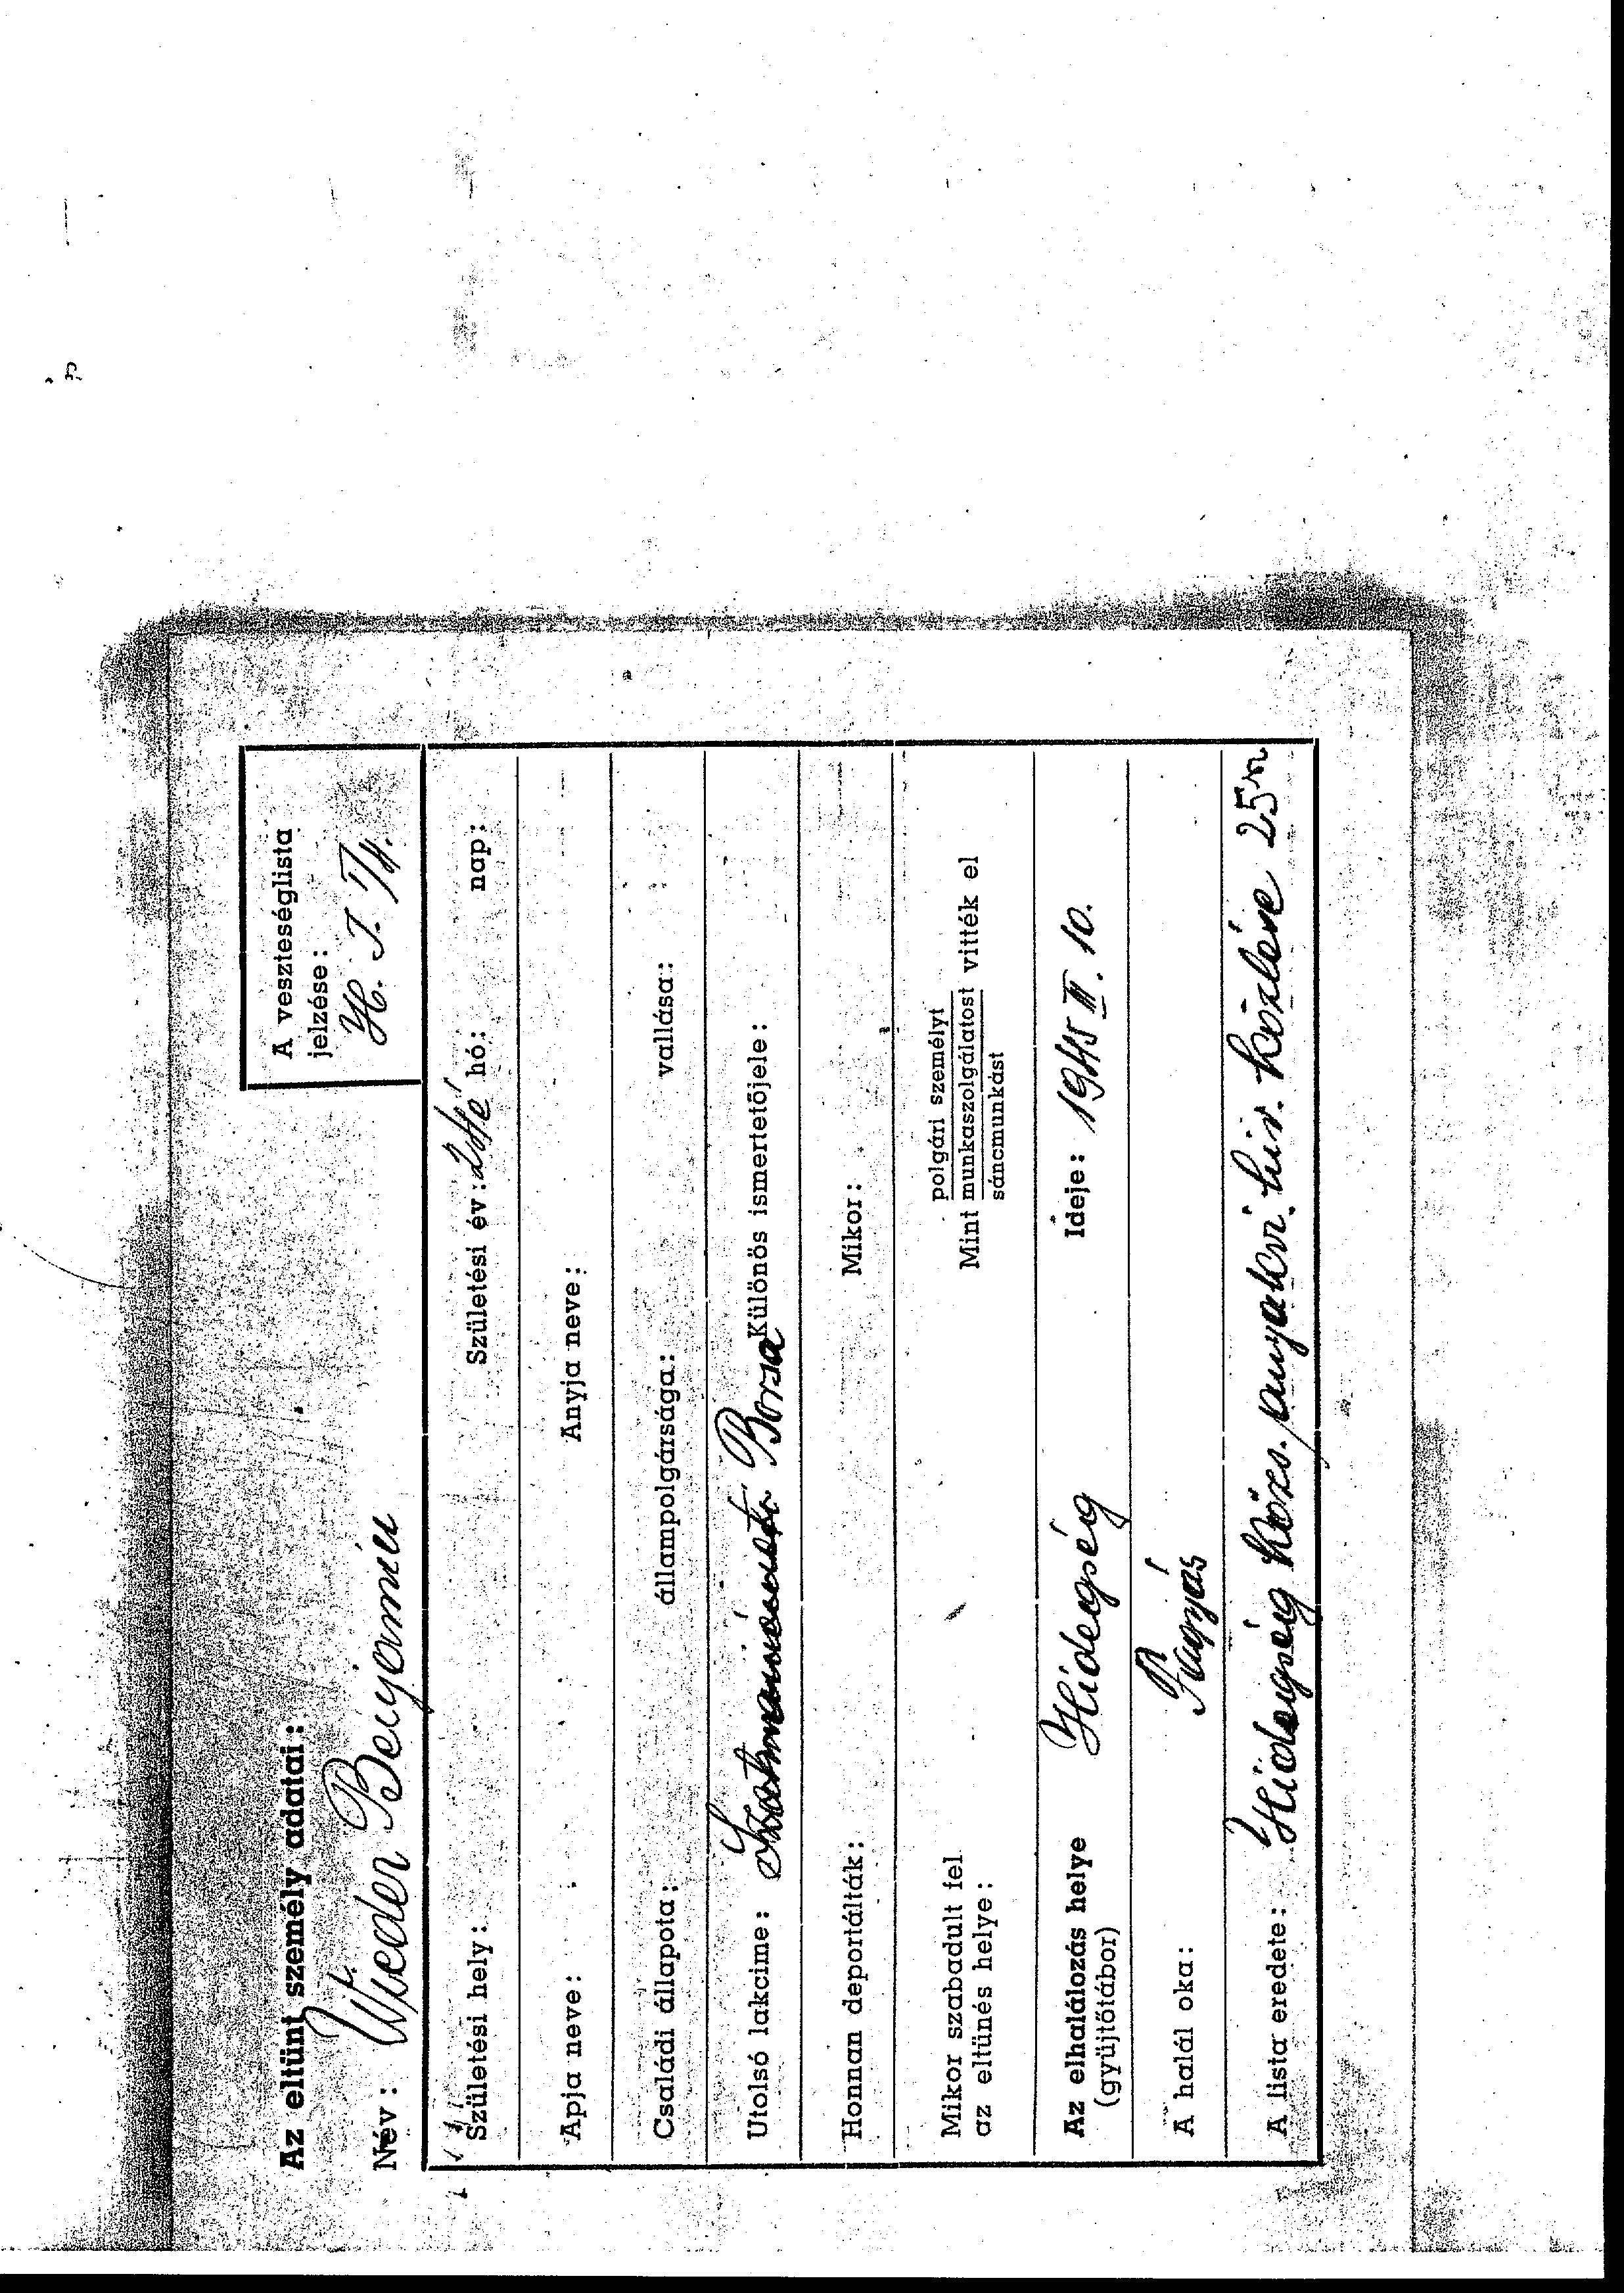 Az eltünt személy adatai:
A veszteséglista
jelzése:
H. I. 7/4.
Név: Wieder Benjamin
Születési hely: Születési év: 24 é hó: nap:
Apja neve: Anyja neve:
Családi állapota: állampolgársága: vallása:
Utolsó lakcime: Borsa Különös ismertetőjele:
Honnan deportálták: Mikor:
Mikor szabadult fel
az eltünés helye:
polgári személyt
Mint munkaszolgálatost vitték el
sáncmunkást
Az elhalálozás helye Hidegség Ideje: 1945 II. 10.
(gyüjtőtábor)
A halál oka: Fagyás
A lista eredete: Hidegség közs. anyakvi. hiv. közlése 25n